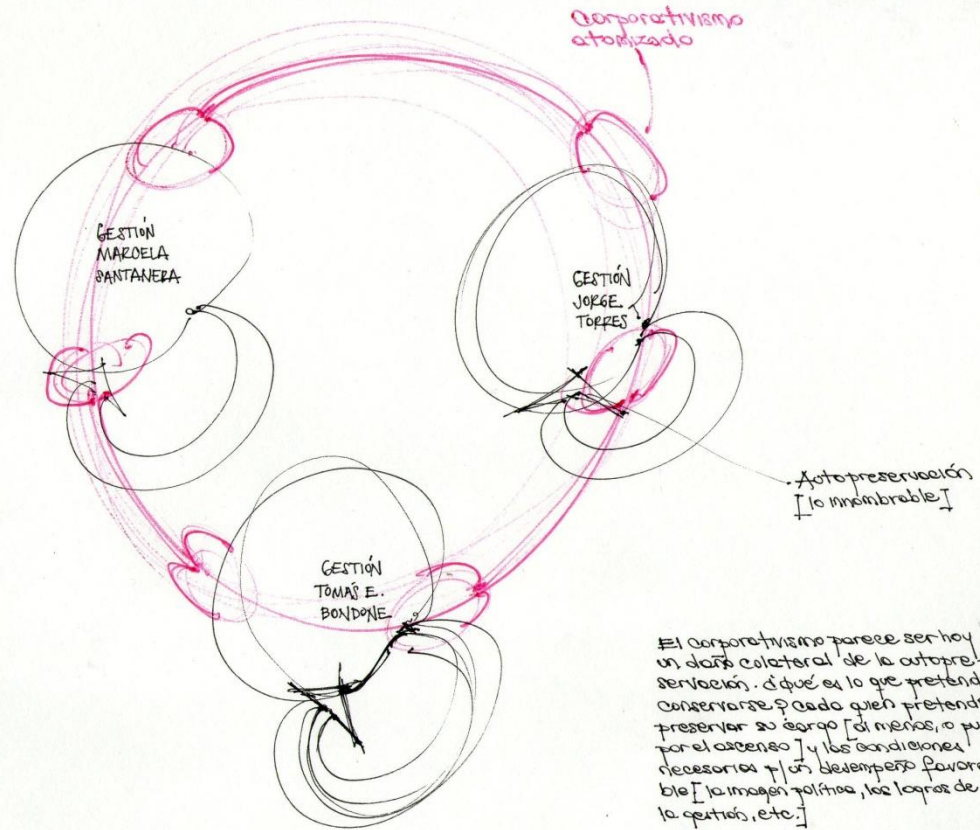 Corporativismo
atomizado
GESTIÓN
MARCELA
SANTANERA
GESTIÓN
JORGE
TORRES
Autopreservación
[lo innombrable]
GESTIÓN
TOMÁS E.
BONDONE
El corporativismo parece ser hoy
un daño colateral de la autopre-
servación. ¿qué es lo que pretend
conservarse? cada quien pretend
preservar su cargo [al menos, o pu
por el ascenso] y las condiciones
necesarias p/ un desempeño favora
ble [la imagen política, los logros de
la gestión, etc.]